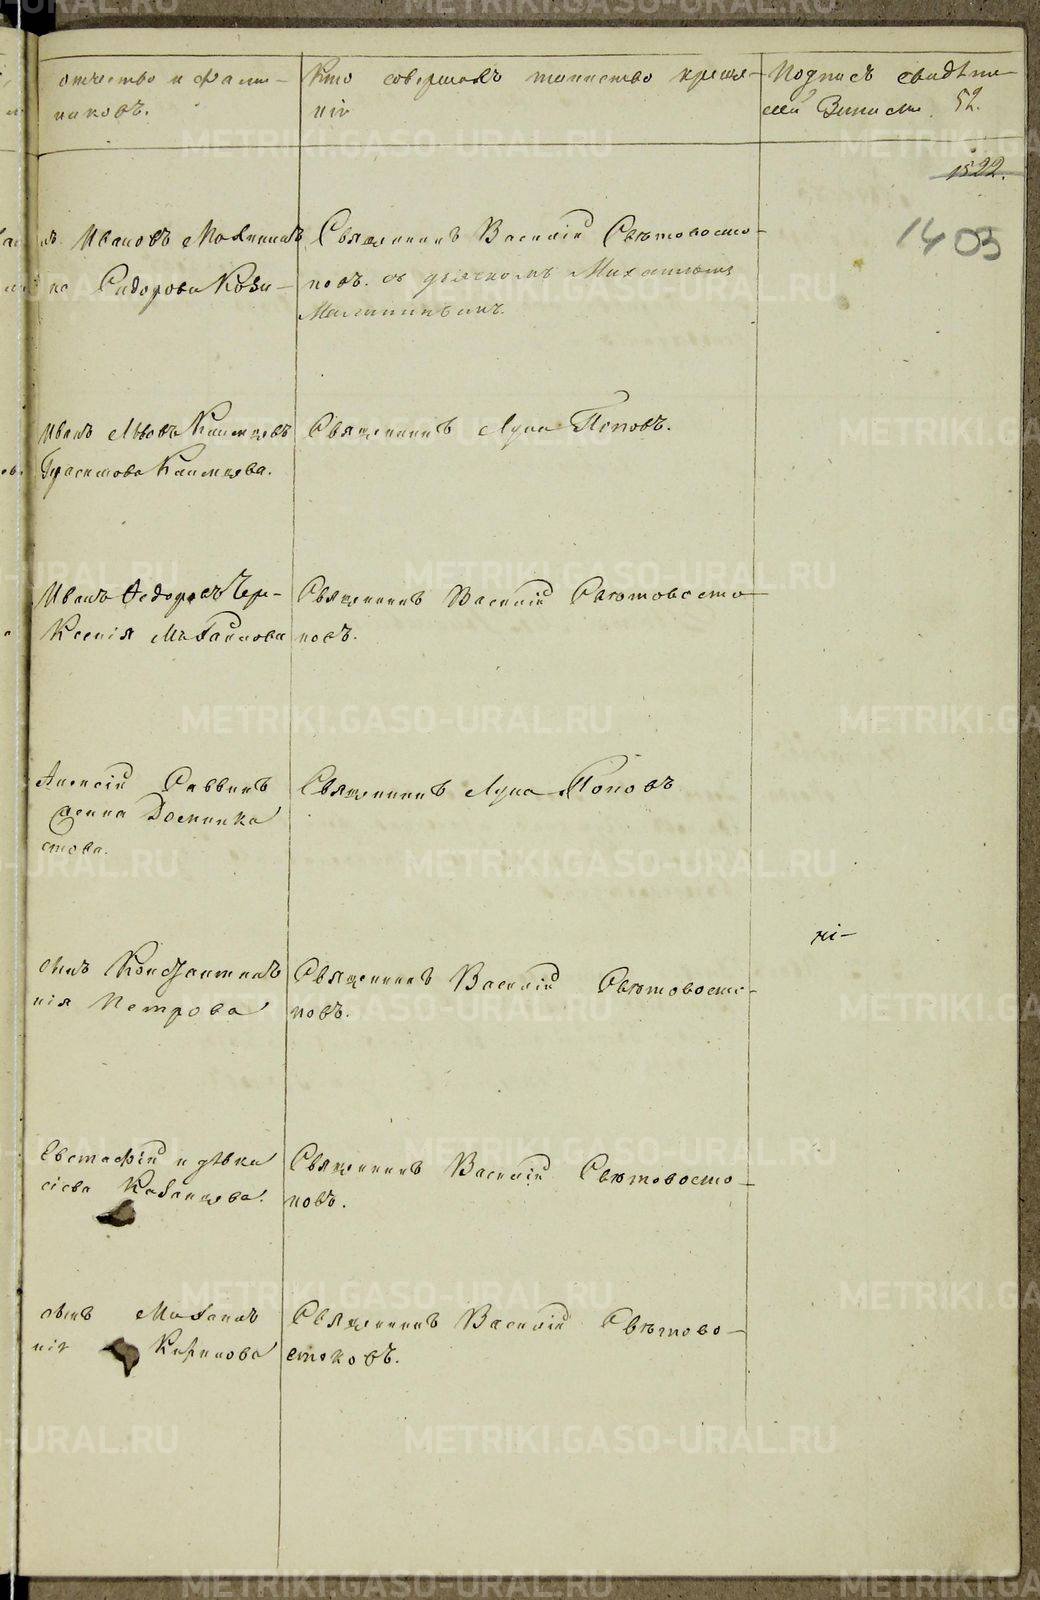 отчество и фами-
никовъ.
Кто совершалъ таинство креще-
нія
Подпись свидѣте-
лей Записи
52.
1522.
1403
Ивановъ
на Сидорова Кози-
Священникъ Василій Свѣтовосто-
ковъ. съ дьячкомъ Михаиломъ
Иванъ Львовъ Клименовъ
Герасимова
Священникъ Лука Поповъ.
Иванъ Ѳедоровъ Чер-
Ксенія
Священникъ Василій Свѣтовосто-
ковъ.
Алексій Саввинъ
стова.
Священникъ Лука Поповъ
Константинъ
нія Петрова
Священникъ Василій Свѣтовосто-
ковъ.
ні-
Евстафій и дѣвка
сіева Казанцева.
Священникъ Василій Свѣтовосто-
ковъ.
нія Кирилова
Священникъ Василій Свѣтово-
стоковъ.
METRIKI.GASO-URAL.RU